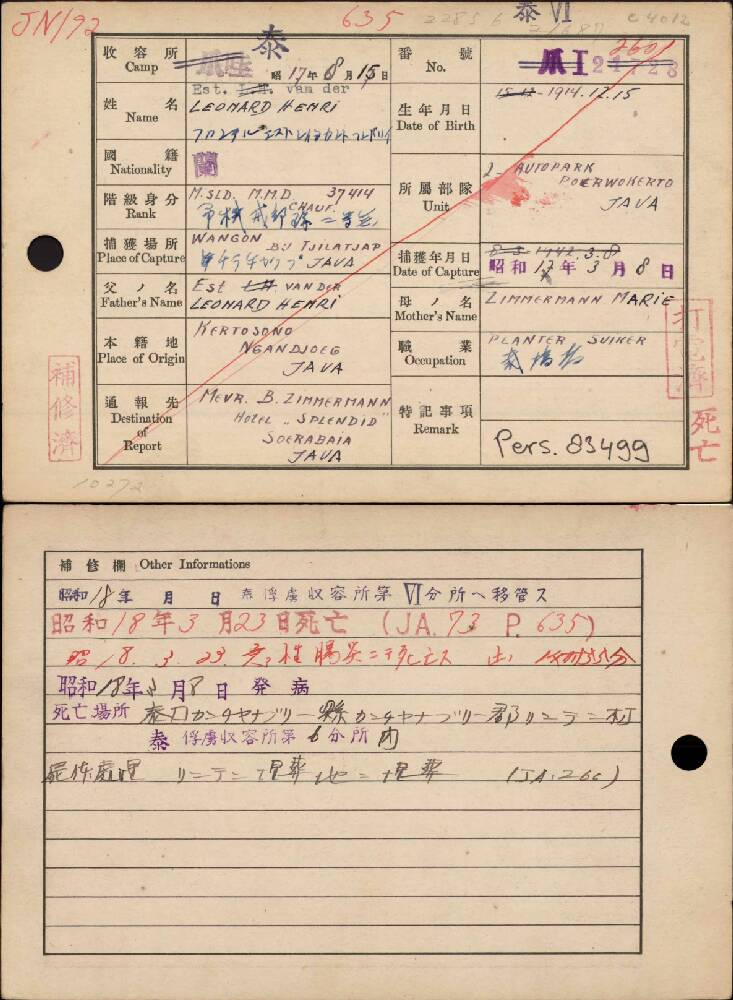 JN/92
635
22856
泰 VI
C 4012
21687
泰
收容所 Camp
爪哇
昭17年8月15日
番號 No.
爪I 24728
2601
姓名 Name
Est. L.H. van der
LEONARD HENRI
生年月日 Date of Birth
1914.12.15
國籍 Nationality
蘭
階級身分 Rank
M.SLD. M.M.D 37414
CHAUF.
所屬部隊 Unit
2- AUTOPARK
POERWOKERTO
JAVA
捕獲場所 Place of Capture
WANGON
BIJ TJILATJAP
JAVA
捕獲年月日 Date of Capture
8-3-1942.3.8
昭和17年3月8日
父ノ名 Father's Name
Est L.H. VAN DER
LEONARD HENRI
母ノ名 Mother's Name
ZIMMERMANN MARIE
本籍地 Place of Origin
KERTOSONO
NGANDJOEG
JAVA
職業 Occupation
PLANTER SUIKER
通報先 Destination of Report
MEVR. B. ZIMMERMANN
HOTEL „SPLENDID"
SOERABAIA
JAVA
特記事項 Remark
Pers. 83499
補修濟
打電濟
死亡
10272
補修欄 Other Informations
昭和18年 月 日 泰俘虜収容所第VI分所ヘ移管ス
昭和18年3月23日死亡 (JA.73 P.635)
昭18.3.23. 急性腸炎ニテ死亡ス
昭和18年3月8日発病
死亡場所 泰国カンチヤナブリー縣カンチヤナブリー郡リンテン村
泰俘虜収容所第6分所内
屍体處理 リンテン埋葬地ニ埋葬 (JA.266)